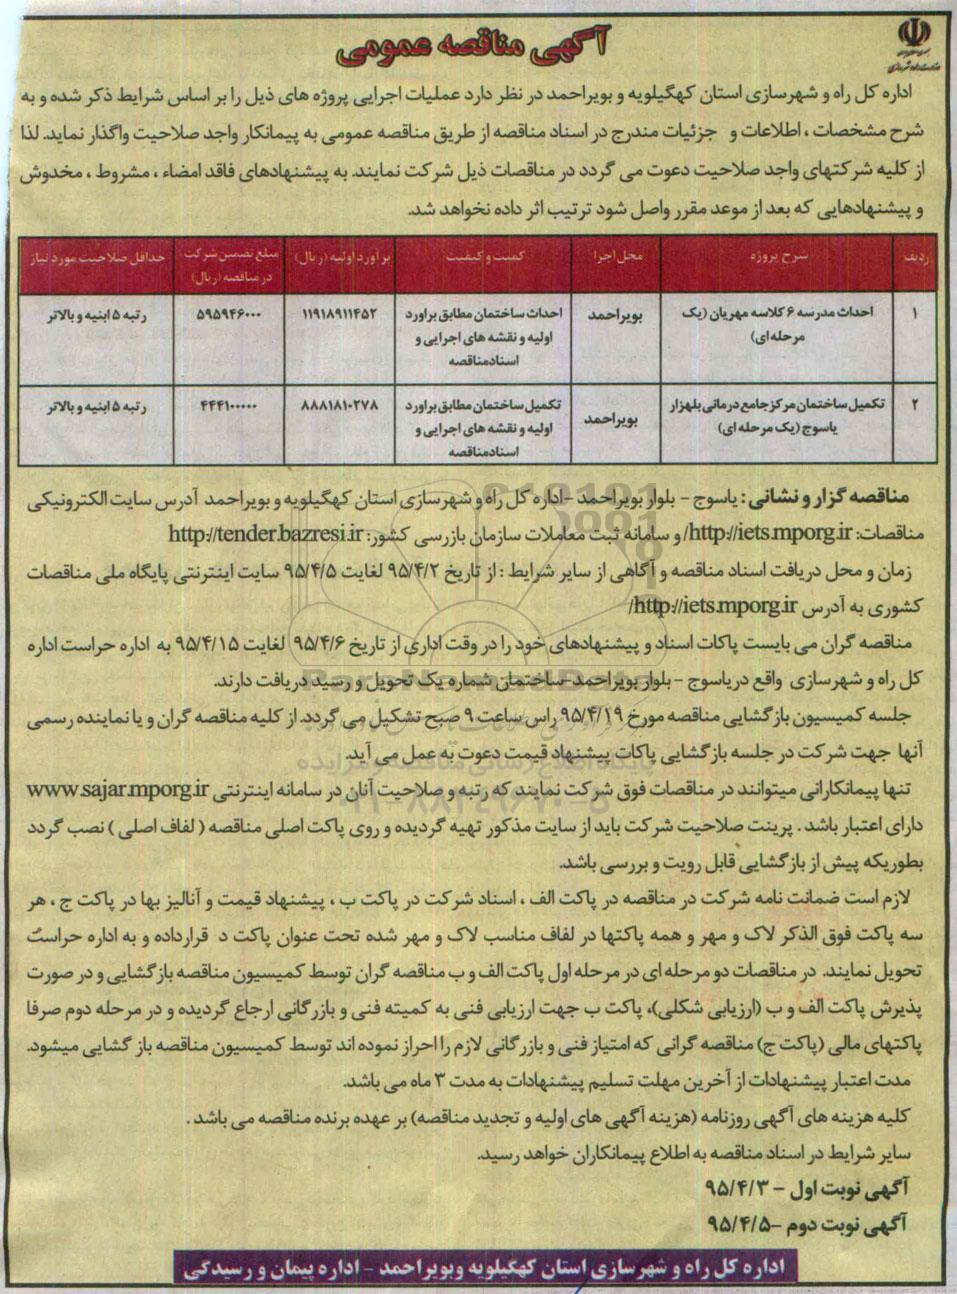 آگهی مناقصه عمومی
اداره کل راه و شهرسازی استان کهگیلویه و بویراحمد در نظر دارد عملیات اجرایی پروژه های ذیل را بر اساس شرایط ذکر شده و به
شرح مشخصات ، اطلاعات و جزئیات مندرج در اسناد مناقصه از طریق مناقصه عمومی به پیمانکار واجد صلاحیت واگذار نماید. لذا
از کلیه شرکتهای واجد صلاحیت دعوت می گردد در مناقصات ذیل شرکت نمایند. به پیشنهادهای فاقد امضاء ، مشروط ، مخدوش
و پیشنهادهایی که بعد از موعد مقرر واصل شود ترتیب اثر داده نخواهد شد.
ردیف شرح پروژه محل اجرا کمیت و کیفیت برآورد اولیه (ریال) مبلغ تضمین شرکت در مناقصه (ریال) حداقل صلاحیت مورد نیاز
۱ احداث مدرسه ۶ کلاسه مهریان (یک مرحله ای) بویراحمد احداث ساختمان مطابق براورد اولیه و نقشه های اجرایی و اسنادمناقصه ۱۱۹۱۸۹۱۱۴۵۲ ۵۹۵۹۴۶۰۰۰ رتبه ۵ ابنیه و بالاتر
۲ تکمیل ساختمان مرکز جامع درمانی بلهزار یاسوج (یک مرحله ای) بویراحمد تکمیل ساختمان مطابق براورد اولیه و نقشه های اجرایی و اسنادمناقصه ۸۸۸۱۸۱۰۲۷۸ ۴۴۴۱۰۰۰۰۰ رتبه ۵ ابنیه و بالاتر
مناقصه گزار و نشانی : یاسوج - بلوار بویراحمد -اداره کل راه و شهرسازی استان کهگیلویه و بویراحمد آدرس سایت الکترونیکی
مناقصات: http://iets.mporg.ir/ و سامانه ثبت معاملات سازمان بازرسی کشور: http://tender.bazresi.ir
زمان و محل دریافت اسناد مناقصه و آگاهی از سایر شرایط : از تاریخ ۹۵/۴/۲ لغایت ۹۵/۴/۵ سایت اینترنتی پایگاه ملی مناقصات
کشوری به آدرس http://iets.mporg.ir/
مناقصه گران می بایست پاکات اسناد و پیشنهادهای خود را در وقت اداری از تاریخ ۹۵/۴/۶ لغایت ۹۵/۴/۱۵ به اداره حراست اداره
کل راه و شهرسازی واقع دریاسوج - بلوار بویراحمد-ساختمان شماره یک تحویل و رسید دریافت دارند.
جلسه کمیسیون بازگشایی مناقصه مورخ ۹۵/۴/۱۹ راس ساعت ۹ صبح تشکیل می گردد. از کلیه مناقصه گران و یا نماینده رسمی
آنها جهت شرکت در جلسه بازگشایی پاکات پیشنهاد قیمت دعوت به عمل می آید.
تنها پیمانکارانی میتوانند در مناقصات فوق شرکت نمایند که رتبه و صلاحیت آنان در سامانه اینترنتی www.sajar.mporg.ir
دارای اعتبار باشد . پرینت صلاحیت شرکت باید از سایت مذکور تهیه گردیده و روی پاکت اصلی مناقصه ( لفاف اصلی ) نصب گردد
بطوریکه پیش از بازگشایی قابل رویت و بررسی باشد.
لازم است ضمانت نامه شرکت در مناقصه در پاکت الف ، اسناد شرکت در پاکت ب ، پیشنهاد قیمت و آنالیز بها در پاکت ج ، هر
سه پاکت فوق الذکر لاک و مهر و همه پاکتها در لفاف مناسب لاک و مهر شده تحت عنوان پاکت د قرارداده و به اداره حراست
تحویل نمایند. در مناقصات دو مرحله ای در مرحله اول پاکت الف و ب مناقصه گران توسط کمیسیون مناقصه بازگشایی و در صورت
پذیرش پاکت الف و ب (ارزیابی شکلی)، پاکت ب جهت ارزیابی فنی به کمیته فنی و بازرگانی ارجاع گردیده و در مرحله دوم صرفا
پاکتهای مالی (پاکت ج) مناقصه گرانی که امتیاز فنی و بازرگانی لازم را احراز نموده اند توسط کمیسیون مناقصه باز گشایی میشود.
مدت اعتبار پیشنهادات از آخرین مهلت تسلیم پیشنهادات به مدت ۳ ماه می باشد.
کلیه هزینه های آگهی روزنامه (هزینه آگهی های اولیه و تجدید مناقصه) بر عهده برنده مناقصه می باشد .
سایر شرایط در اسناد مناقصه به اطلاع پیمانکاران خواهد رسید.
آگهی نوبت اول - ۹۵/۴/۳
آگهی نوبت دوم -۹۵/۴/۵
اداره کل راه و شهرسازی استان کهگیلویه وبویراحمد - اداره پیمان و رسیدگی